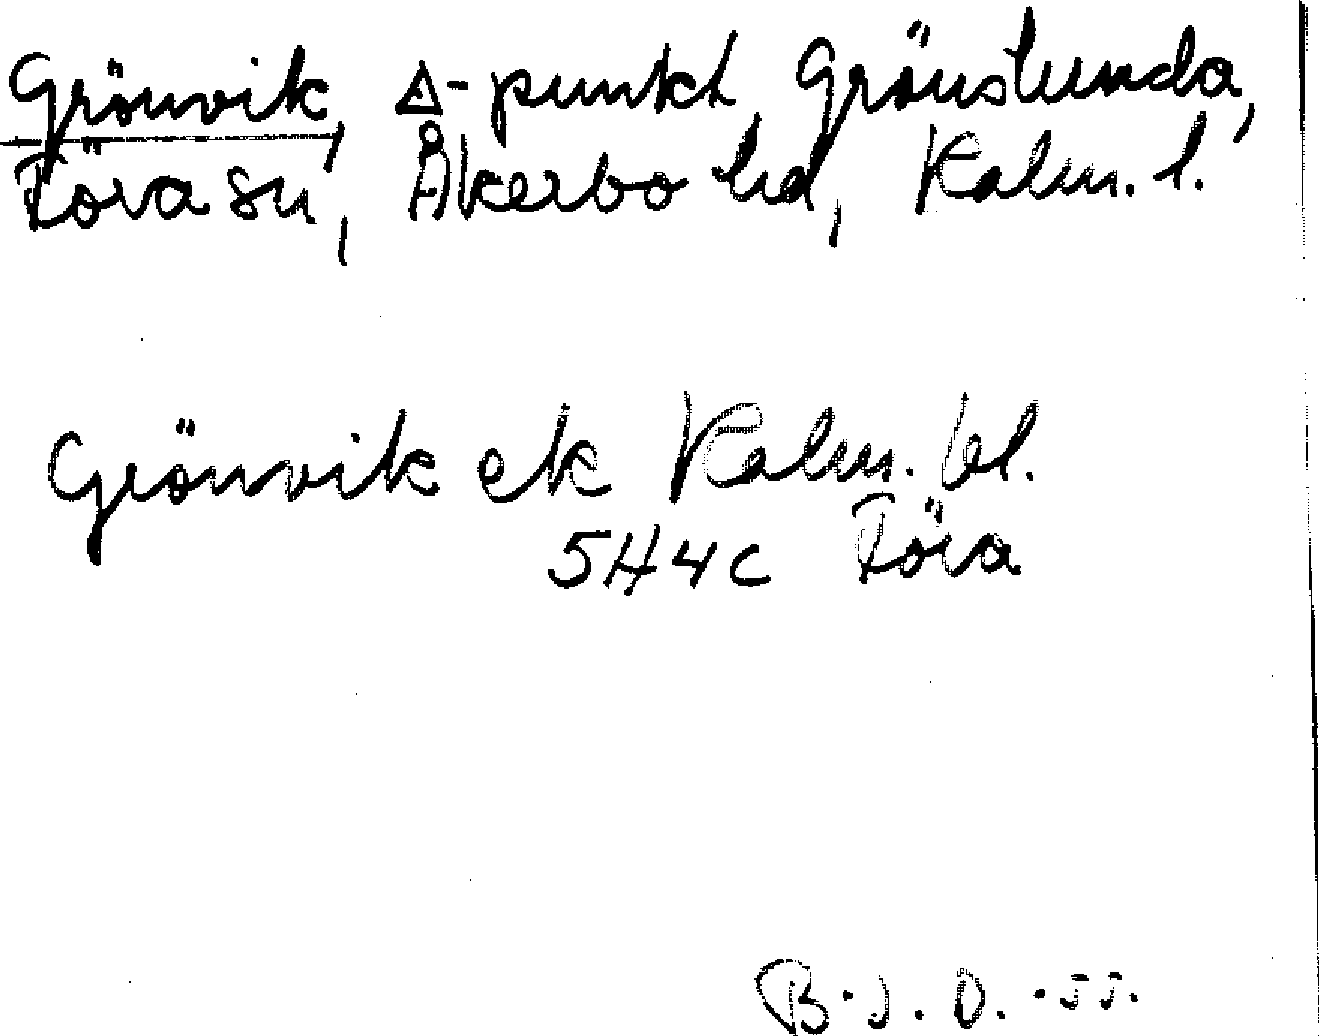 Grönvik, Δ-punkt, Grönslunda,
Föra sn, Åkerbo hd, Kalm. l.
Grönvik ek Kalm. bl.
5H4c Föra
B. J. D. -55.